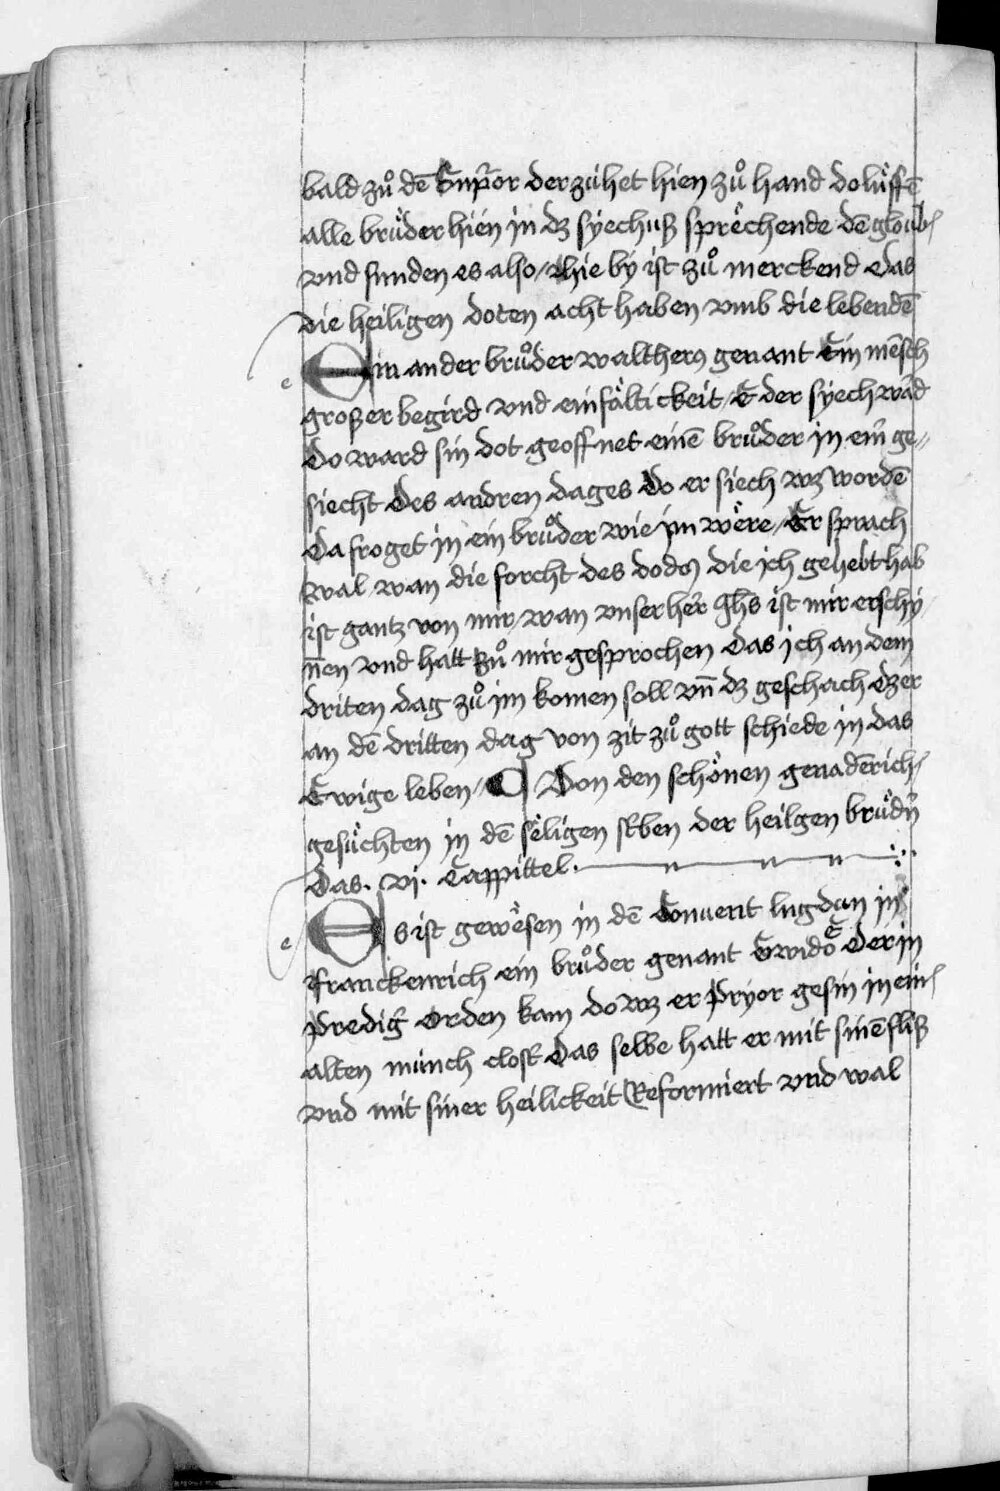 bald zuͦ dē Supͥor der zu het hien zuͦ hand do luͤffē
alle bruͤder hien in dz syechusz sprëchende dē gloubē
vnd funden es also / hie by ist zuͦ merckend das
die heiligen doten acht haben vmb die lebendē
Ein ander bruͦder waltherꝰ genant Ein mēsch
groszer begird vnd einfaͤltickeit / E der syech ward
Do ward sin dot geoffnet einē bruͦder in eim̄ ge-
siecht des andren dages do er siech wz wordē
Da froget in ein bruͦder wie im wëre / Er sprach
wal / wan die forcht des dodes die ich gehebt hab
ist gantz von mir / wan vnser her̄ jhs̄ ist mir erschy-
nen vnd hatt zuͦ mir gesprochen das ich an dem
driten dag zuͦ im komen soll vn̄ dz geschach dz er
an dē dritten dag von zit zuͦ gott schiede in das
Ewige leben / ¶ Von den schönen genadērich
gesuͤchten in dē sëligen stben der heilgen bruͤdn̄
Das . vi . Cappittel .
e Es ist gewësen in dē Conuent lugdun in
franckenrich ein bruͦder genant Gwido Der in
predig̉ Orden kam do wz er pryor gesin in ein
alten münch clost̉ das selbe hatt er mit sinē flisz
vnd mit siner heilickeit Reformiert vnd wal